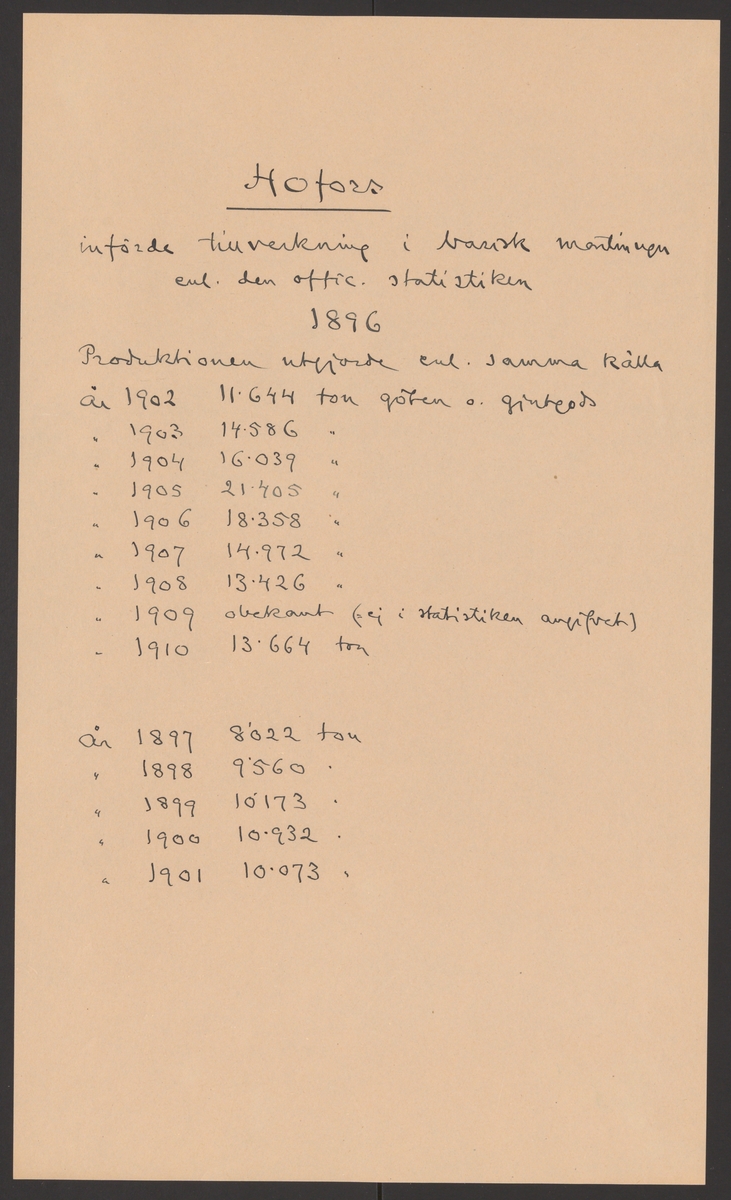 Hofors
införde tillverkning i basisk martinugn
enl. den offic. statistiken
1896
Produktionen utgjorde enl. samma källa
År 1902 11.644 ton göten o. gjutgods
" 1903 14.586 "
" 1904 16.039 "
" 1905 21.405 "
" 1906 18.358 "
" 1907 14.972 "
" 1908 13.426 "
" 1909 obekant (= ej i statistiken angifvet)
" 1910 13.664 ton
År 1897 8'022 ton
" 1898 9'560 "
" 1899 10'173 "
" 1900 10.932 "
" 1901 10.073 "